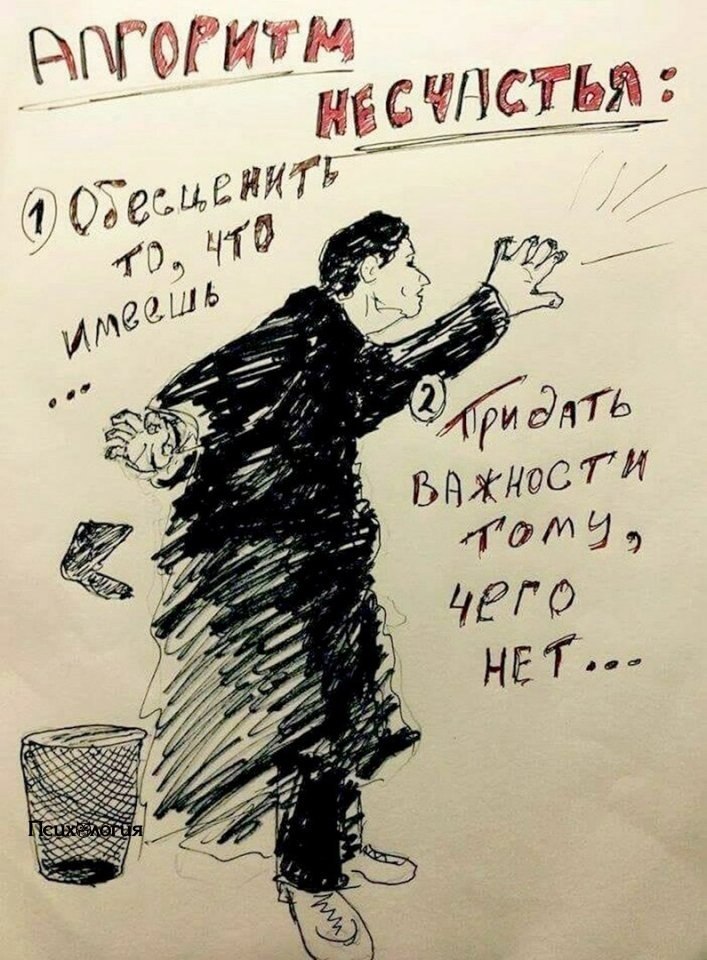 АЛГОРИТМ
НЕСЧАСТЬЯ:
1 Обесценить
то, что
имеешь
...
2 Придать
важности
тому,
чего
нет...
Психология